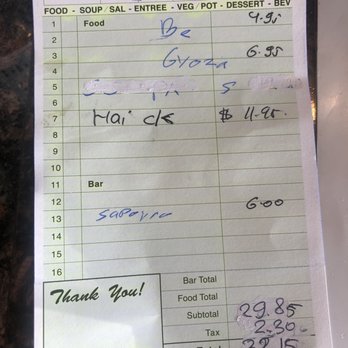 FOOD - SOUP/SAL - ENTREE - VEG/POT - DESSERT - BEV
1 Food 4.95
2 Be
3 Gyoza 6.95
4
5
6
7 Mai c/s $ 11.95.
8
9
10
11 Bar
12 6.00
13 Sapporo
14
15
16
Thank You!
Bar Total
Food Total
Subtotal 29.85
Tax 2.30
32.15